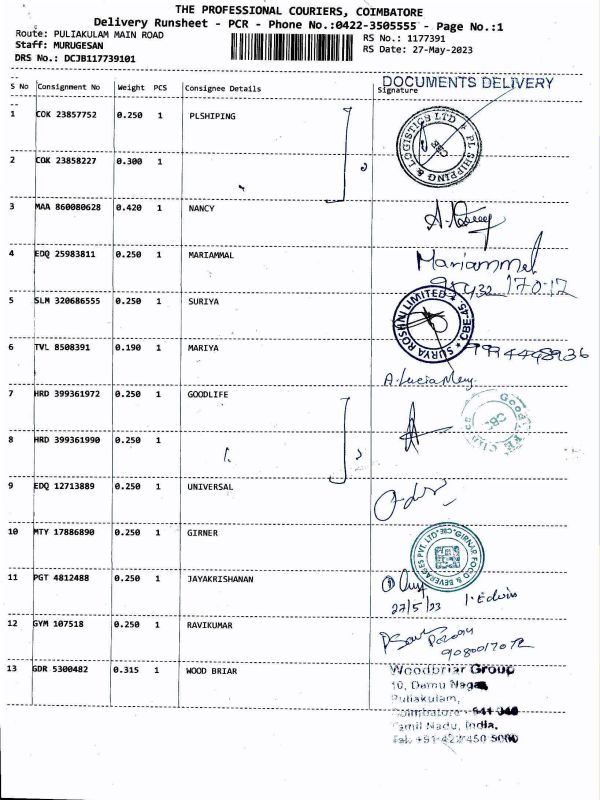 THE PROFESSIONAL COURIERS, COIMBATORE
Delivery Runsheet - PCR - Phone No.:0422-3505555 - Page No.:1
Route: PULIAKULAM MAIN ROAD
RS No.: 1177391
Staff: MURUGESAN
RS Date: 27-May-2023
DRS No.: DCJB117739101
DOCUMENTS DELIVERY
S No Consignment No Weight PCS Consignee Details Signature
1 COK 23857752 0.250 1 PLSHIPING
PL SHIPPING & LOGISTICS LTD
2 COK 23858227 0.300 1
3 MAA 860080628 0.420 1 NANCY
4 EDQ 25983811 0.250 1 MARIAMMAL
Mariammel
5 SLM 320686555 0.250 1 SURIYA
SURYA ROSHNI LIMITED * CBE-45 *
6 TVL 8508391 0.190 1 MARIYA
A. Lucia Mery
7 HRD 399361972 0.250 1 GOODLIFE
8 HRD 399361990 0.250 1
9 EDQ 12713889 0.250 1 UNIVERSAL
10 MTY 17886890 0.250 1 GIRNER
GIRNAR FOOD & BEVERAGES PVT. LTD * CBE *
11 PGT 4812488 0.250 1 JAYAKRISHANAN
27/5/23
12 GYM 107518 0.250 1 RAVIKUMAR
13 GDR 5300482 0.315 1 WOOD BRIAR
Woodbriar Group
10, Damu Nagar,
Puliakulam,
Coimbatore -
Tamil Nadu, India.
Tel: +91-422-450 5000